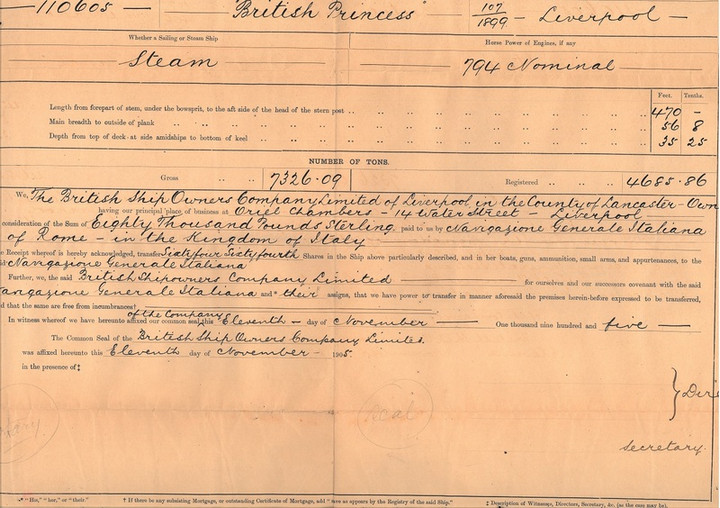 110605 — British Princess 107/1899 — Liverpool —
Whether a Sailing or Steam Ship Horse Power of Engines, if any
Steam 794 Nominal
Feet. Tenths.
Length from forepart of stem, under the bowsprit, to the aft side of the head of the stern post 470 -
Main breadth to outside of plank 56 8
Depth from top of deck at side amidships to bottom of keel 35 25
NUMBER OF TONS.
Gross 7326.09 Registered 4685.86
We, The British Ship Owners Company Limited of Liverpool, in the County of Lancaster - Own
having our principal place of business at Oriel Chambers - 14 Water Street - Liverpool -
consideration of the Sum of Eighty Thousand Pounds Sterling paid to us by Navigazione Generale Italiana
of Rome - in the Kingdom of Italy
Receipt whereof is hereby acknowledged, transfer Sixty four Sixty fourth Shares in the Ship above particularly described, and in her boats, guns, ammunition, small arms, and appurtenances, to the
Navigazione Generale Italiana
Further, we, the said British Shipowners Company Limited — for ourselves and our successors covenant with the said
Navigazione Generale Italiana and * their assigns, that we have power to transfer in manner aforesaid the premises herein-before expressed to be transferred,
d that the same are free from incumbrances†
of the Company
In witness whereof we have hereunto affixed our common seal this Eleventh — day of November — One thousand nine hundred and five —
The Common Seal of the British Ship Owners Company Limited.
was affixed hereunto this Eleventh day of November - 1905.
in the presence of‡
} Dire
Seal
Secretary.
* "His," "her," or "their." † If there be any subsisting Mortgage, or outstanding Certificate of Mortgage, add "save as appears by the Registry of the said Ship." ‡ Description of Witnesses, Directors, Secretary, &c. (as the case may be).